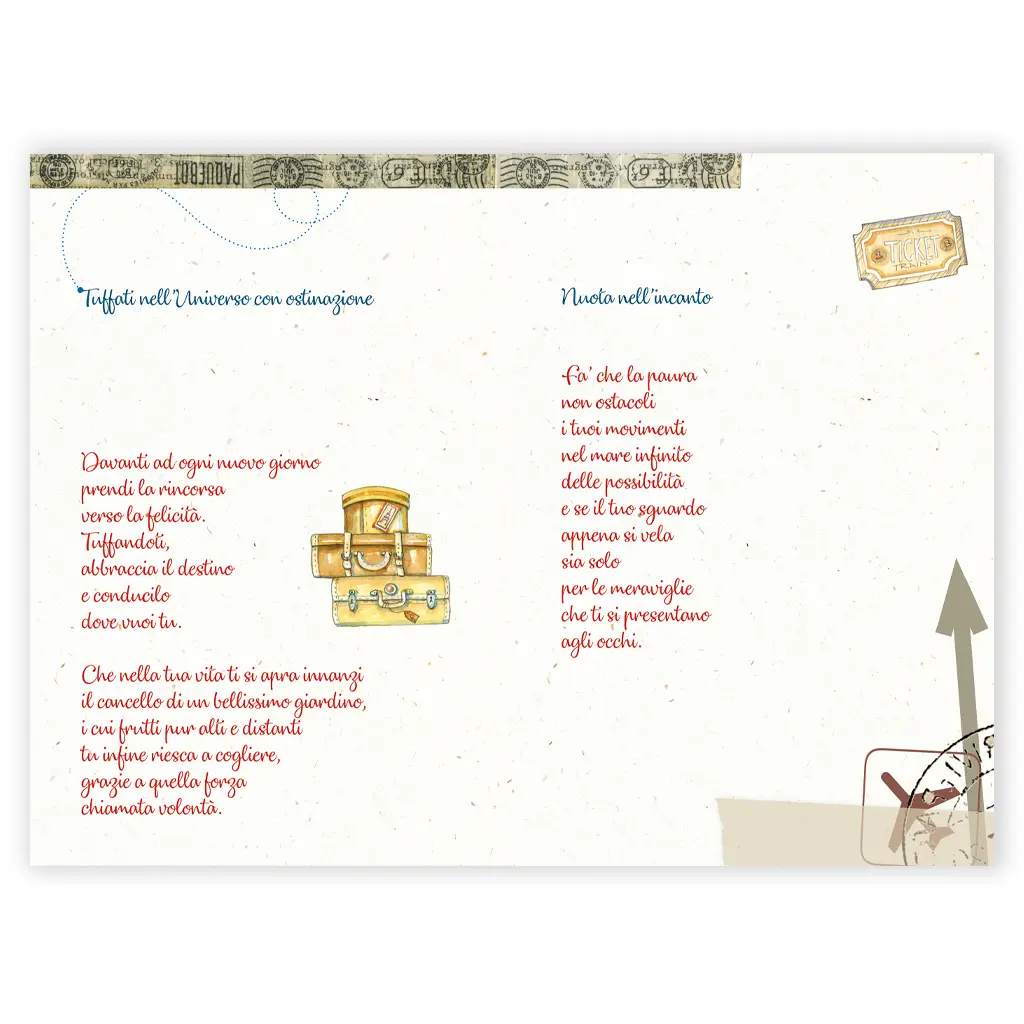 PAQUEBOT
TICKET
TRAIN
Tuffati nell'Universo con ostinazione
Davanti ad ogni nuovo giorno
prendi la rincorsa
verso la felicità.
Tuffandoti,
abbraccia il destino
e conducilo
dove vuoi tu.
Che nella tua vita ti si apra innanzi
il cancello di un bellissimo giardino,
i cui frutti pur alti e distanti
tu infine riesca a cogliere,
grazie a quella forza
chiamata volontà.
Nuota nell'incanto
Fa' che la paura
non ostacoli
i tuoi movimenti
nel mare infinito
delle possibilità
e se il tuo sguardo
appena si vela
sia solo
per le meraviglie
che ti si presentano
agli occhi.